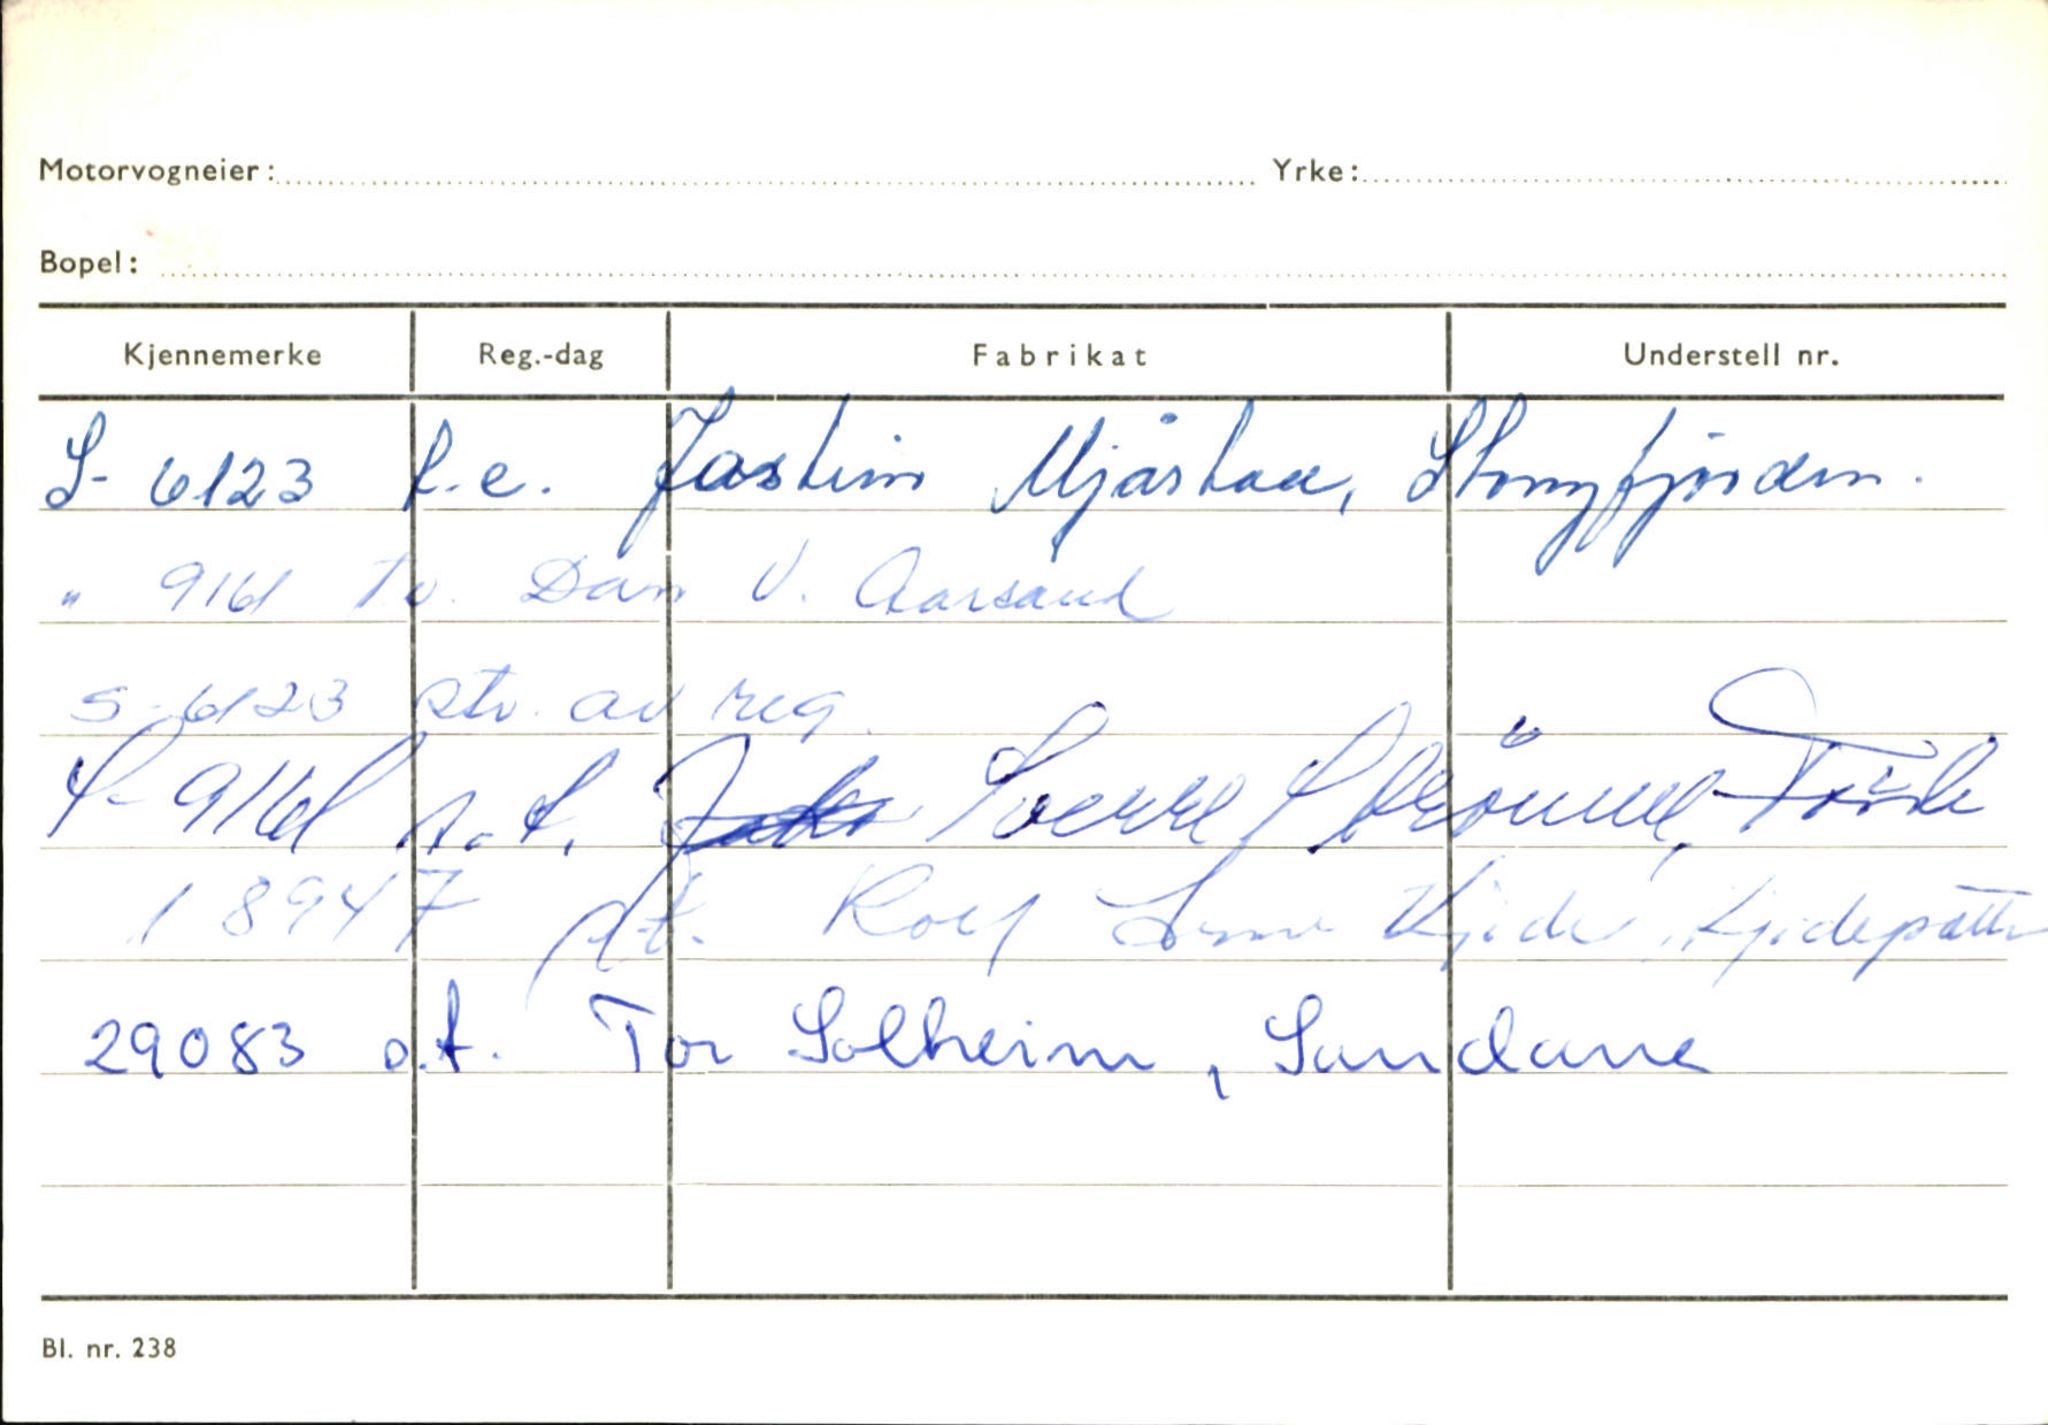 Motorvogneier: Yrke:
Bopel:
Kjennemerke Reg.-dag Fabrikat Understell nr.
S- 6123 f.e. Jostein Mjåstad, Stongfjorden.
" 9161 t.v. Dan V. Aarsand
S-6123 str. av reg.
S-9161 Sverre Förde
18947 p.t. Rolf Kjelde,
29083 o.t. Tor Solheim, Sandane
Bl. nr. 238